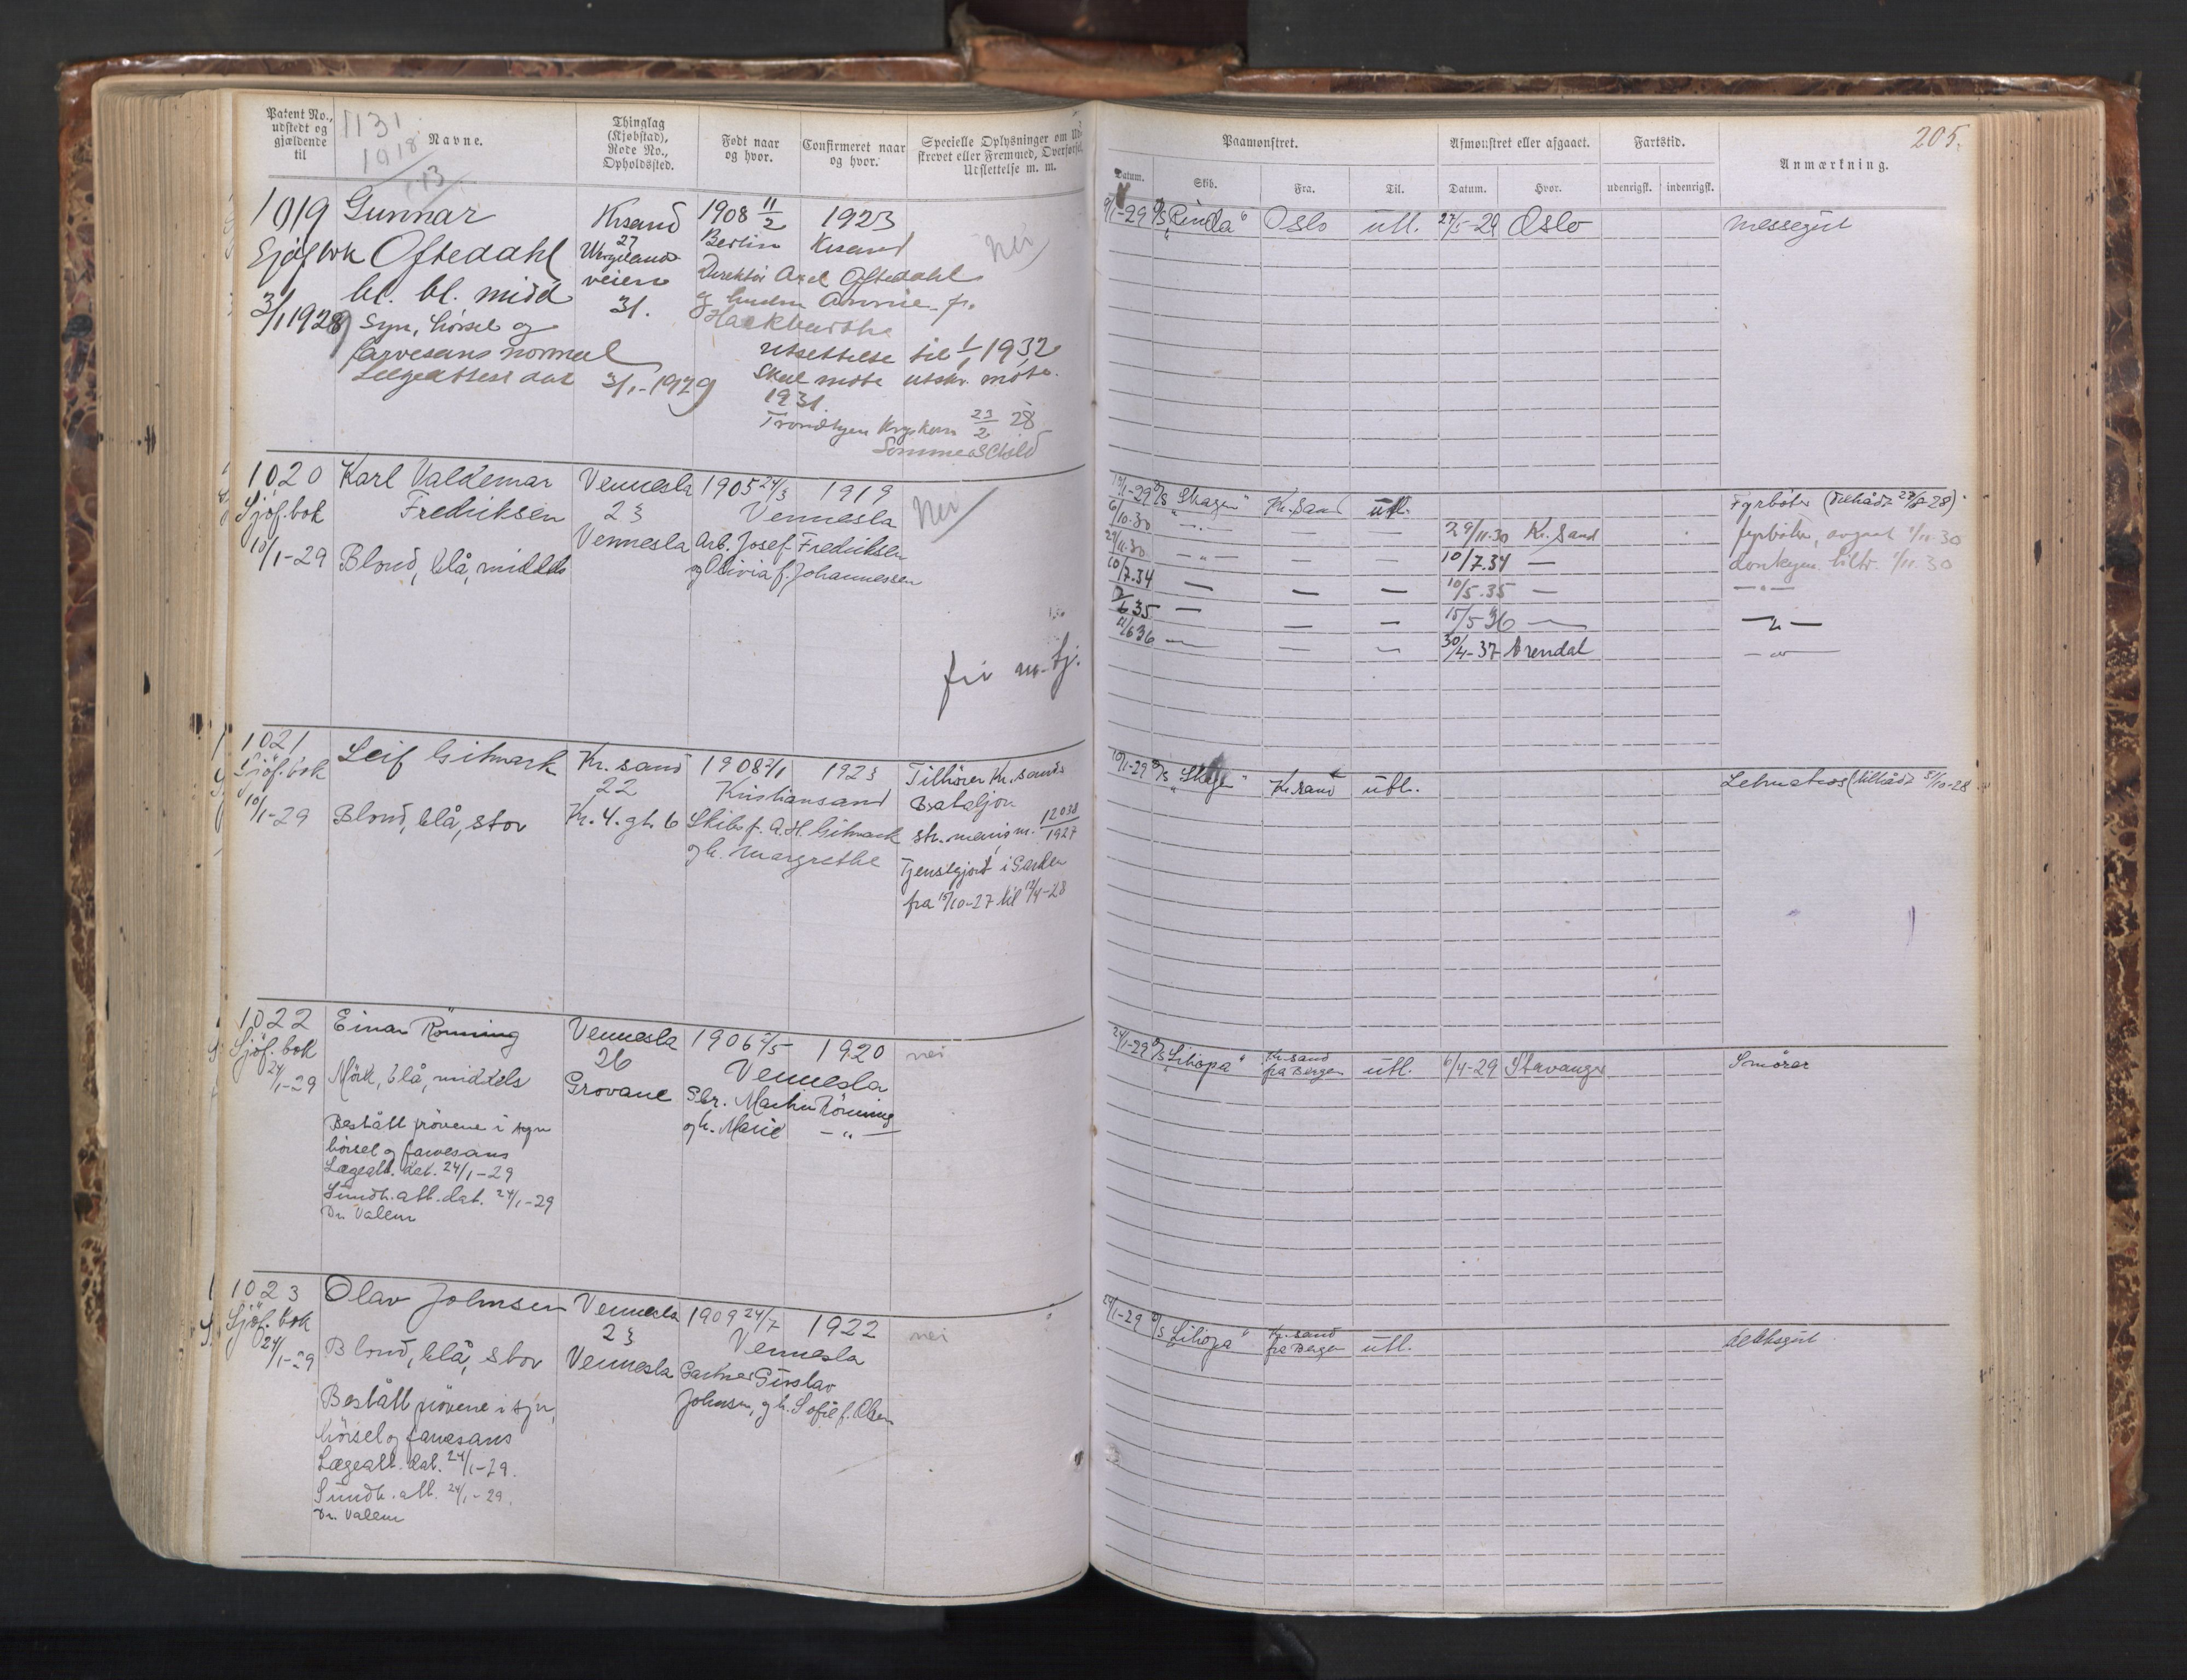 Patent No.,
udstedt og
gjældende
til
1131
1918
13
Navne.
Thinglag
(Kjøbstad),
Rode No.,
Opholdssted.
Født naar
og hvor.
Confirmeret naar
og hvor.
Specielle Oplysninger om Ud-
skrevet eller Fremmed, Overførsel,
Udslettelse m. m.
1019
Sjøf bok
3/1 1929
Gunnar
Oftedahl
bl. bl. midd
Syn, hørsel og
farvesans normal
Lægeattest dat 3/1-1929
Krsand
27
Wergelands
veien
31.
1908 11/2
Berlin
1923
Krsand
nei
Direktør Axel Oftedahl
og hustru Annie f.
Utsettelse til 1/1 1932
Skal møte utskr. møte.
1931.
23/2 28
1020
Sjöf. bok
10/1-29
Karl Valdemar
Fredriksen
Blond, blå, middels
Vennesla
23
Vennesla
1905 24/3
1919
Vennesla
Arb. Josef Fredriksen
og Olivia f. Johannessen
Nei
fri m. tj.
1021
Sjöf. bok
10/1-29
Leif Gitmark
Blond, blå, stor
Kr. sand
22
Kr. 4. gt. 6
1908 2/1
1923
Kristiansand
Skibsf. A. H. Gitmark
og h. Margrethe
Tilhører Kr. sands
Bataljon
str. menig nr. 12038/1927
Tjenstgjort i Garden
fra 15/10-27 til 12/4-28
1022
Sjöf. bok
24/1-29
Einar Rönning
Mörk, blå, middels
Bestått prövene i syn
hörsel og farvesans
Lægeatt. dat. 24/1-29
Sundh. att. dat. 24/1-29
Dr. Valeur
Vennesla
26
Grovane
1906 2/5
1920
Vennesla
Martin Rönning
og h. Marie — " —
nei
1023
Sjöf. bok
24/1-29
Olav Johnsen
Blond, blå, stor
Bestått prövene i syn,
hörsel og farvesans
Lægeatt. dat. 24/1-29.
Sundh. att. 24/1-29.
Dr. Valeur
Vennesla
23
Vennesla
1909 24/7
1922
Vennesla
Johnsen, og h. Sofie f. Olsen
nei
205.
Paamønstret.
Afmønstret eller afgaaet.
Fartstid.
Anmærkning.
Datum.
Skib.
Fra.
Til.
Datum.
Hvor.
udenrigsk.
indenrigsk.
9/1-29 D/S "Rinda" Oslo utl. 27/5-29 Oslo messegut
10/1-29 D/S "Skagen" Kr. Sand utl. Fyrböter
6/10.30 — " — — — 29/11.30 Kr. Sand fyrböter, avgaat 1/11.30
29/11.30 — " — — — 10/7.34 — donkeym. tiltr. 1/11.30
10/7.34 — — — 10/5.35 — — " —
635 — — — 15/5 36 — — " —
4/6 36 — — — 30/4-37 Arendal — " —
10/1-29 D/S "Skagen" Kr. sand utl. Letmatros (tilhådt 5/10-28
24/1-29 D/S "Liliopa" Kr. sand
fra Bergen utl. 6/4-29 Stavanger Smörer
24/1-29 D/S "Liliopa" Kr. sand
fra Bergen utl. dekksgut